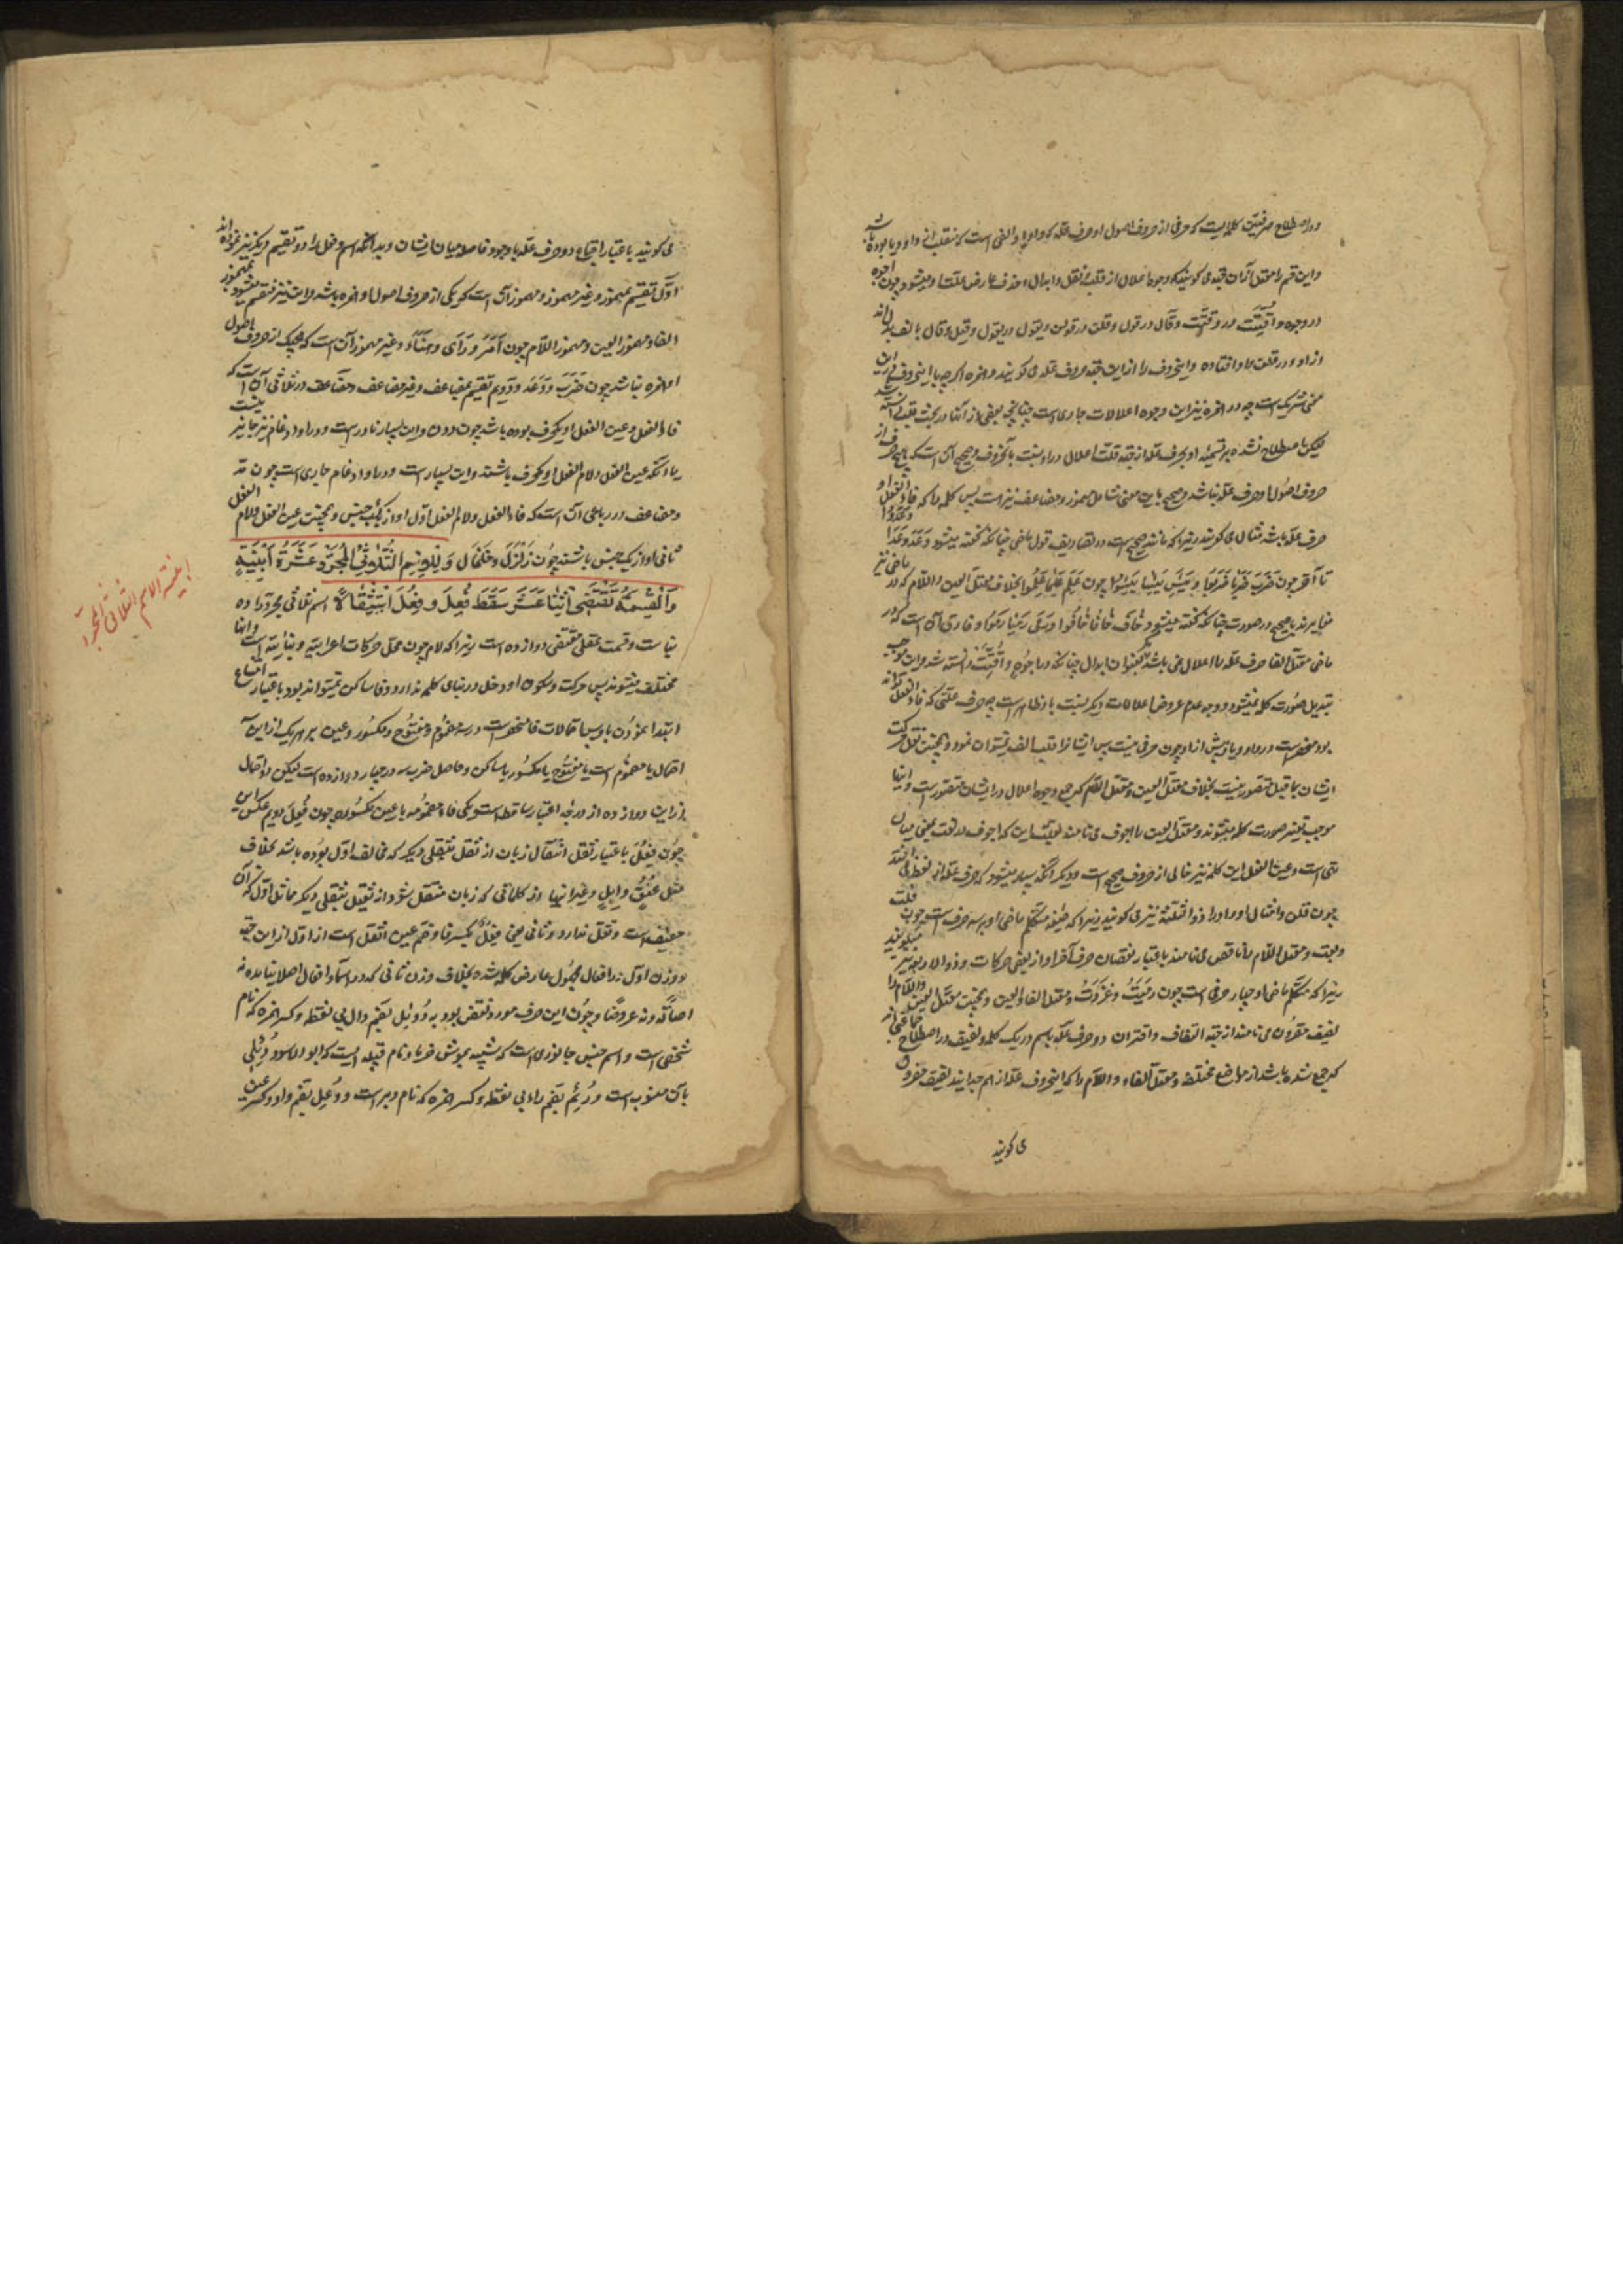 و در اصطلاح صرفیین کلمه ایست که حرفی از حروف اصول او حرف علّه که واو و یا و الفی است که منقلب از واو و یا بوده باشد
و این قسم را معتل از آن جهة می گویند که وجوه اعلال از قلب و نقل و ابدال و حذف عارض علّت او میشود چون اجوه
در وجوه و اُقِّتَت در وُقِّتَت و قال در قول و قلن در قولن و یقول در یقول و قیل و قال بالف بدل اند
از واو در قلن واو افتاده و این حروف را از این جهة حروف علّه می گویند و همزه اگر چه با این حروف در این
معنی شریک است چه در همزه نیز این وجوه اعلالات جاری است چنانچه بعضی از آنها در بحث قلب دانسته شد
لیکن اصطلاح نشده بر تسمیه او بحرف علّه از جهة قلّت اعلال در او نسبت بآنحروف و صحیح آن است که هیچ حرف از
حروف اصول او حرف علّه نباشد و صحیح باین معنی شامل مهموز و مضاعف نیز هست پس کلمه را که فاء الفعل او
حرف علّه باشد مثال می گویند زیرا که مانند صحیح است در تصاریف قول ماضی چنانکه گفته میشود وَعَدَ وَعَدَا وَعَدُوا
تا آخر چون ضَرَبَ ضَرَبَا ضَرَبُوا و یَبِسَ یَبِسَا یَبِسُوا چون عَلِمَ عَلِمَا عَلِمُوا بخلاف معتل العین و اللام که در ماضی نیز
مغایرند با صحیح در صورت چنانکه گفته میشود خافَ خافا خافُوا و رَمَی رَمَیَا رَمَوا و فارق آن است که در
ماضی معتل الفا حرف علّه را اعلال نمی باشد مگر بعنوان ابدال چنانکه در اجُوه و اُقِّتَت دانسته شد و این موجب
تبدیل صورت کلمه نمیشود و وجه عدم عروض اعلالات دیگر نسبت باو ظاهر است چه حرف علّتی که فاء الفعل تواند
بود منحصر است در واو و یا و پیش از او چون حرفی نیست پس ایشانرا قلب بالف نمیتوان نمود و همچنین نقل حرکت
ایشان بماقبل متصور نیست بخلاف معتل العین و معتل اللام که جمیع وجوه اعلال در ایشان متصور است و اینها
موجب تغییر صورت کلمه میشوند و معتل العین را اجوف می نامند
تهی است و عین الفعل این کلمه نیز خالی از حروف صحیح است و دیگر آنکه بسیار میشود که حرف علّه از لفظ می افتد
چون قلن و امثال او و او را ذو الثلثة نیز می گویند زیرا که صیغه متکلم ماضی او بر سه حرف است چون قلت
وبعت و معتل اللام را ناقص می نامند باعتبار نقصان حرف آخر او از بعضی حرکات و ذو الاربعه نیز میگویند
زیرا که متکلم ماضی او چهار حرفی است چون رَمَیْتُ و غَزَوْتُ و معتل الفاء و العین و همچنین معتل العین و اللام را
لفیف مقرون می نامند از جهة التفاف و اقتران دو حرف علّه باهم در یک کلمه و لفیف در اصطلاح
که جمع شده باشد از مواضع مختلفه و معتل الفاء و اللام را که این حروف علّه از هم جدایند لفیف مفروق
می گویند
می گویند باعتبار اجتماع دو حرف علّه با وجود فاصله میان ایشان و بدانکه اسم و فعل را دو تقسیم دیگر نیز نموده اند
اوّل تقسیم بمهموز و غیر مهموز و مهموز آن است که یکی از حروف اصول او همزه باشد و این نیز منقسم میشود بمهموز
الفاء و مهموز العین و مهموز اللام چون اَمَرَ و رَأی و هَنَأَ و غیر مهموز آن است که هیچ یک از حروف اصول
او همزه نباشد چون ضَرَبَ و وَعَدَ و دویم تقسیم بمضاعف و غیر مضاعف و مضاعف در ثلاثی آن است که
فاء الفعل و عین الفعل او یکحرف بوده باشد چون ددن و این بسیار نادر است و در او ادغام نیز جایز نیست
یا آنکه عین الفعل و لام الفعل او یکحرف باشند و این بسیار است و در او ادغام جاری است چون مدّ
و مضاعف در رباعی آن است که فاء الفعل و لام الفعل اول او از یک جنس و همچنین عین الفعل و لام الفعل
ثانی او از یک جنس باشند چون زَلْزَلَ و خَلْخَال وَ لِلْاِسْمِ الثُّلاثِیِّ الْمُجَرَّدِ عَشَرَةُ اَبْنِیَةٍ
وَالْقِسْمَةُ تَقْتَضِی اثْنَا عَشَرَ سَقَطَ فُعِلَ و فِعُلَ اسْتِثْقَالًا اسم ثلاثی مجرد را ده
بناست و قسمت عقلی مقتضی دوازده است زیرا که لام چون محل حرکات اعرابیه و بنائیه است و اینها
مختلف میشوند پس حرکت و سکون او دخل در بنای کلمه ندارد و فا ساکن نمیتواند بود باعتبار امتناع
ابتدا نمودن باو پس احتمالات فا منحصر است در سه مضموم و مفتوح و مکسور و عین بر هر یک از این
احتمال یا مضموم است یا مفتوح یا مکسور یا ساکن و حاصل ضرب سه در چهار دوازده است لیکن دو احتمال
از این دوازده از درجه اعتبار ساقط است یکی فاء مضمومه با عین مکسوره چون فُعِلَ دویم عکس این
چون فِعُلَ باعتبار ثقل انتقال زبان از ثقل بثقلی دیگر که مخالف اول بوده باشد بخلاف
مثل عُنُق و اِبِل و غیر اینها از کلماتی که زبان منتقل شود از ثقیل بثقلی دیگر مماثل اول که آن
خفیف است و ثقل ندارد و ثانی یعنی فِعُل بکسر فا و ضم عین اثقل است از اول از این جهة
وزن اول در افعال مجهول عارض کلمه شده بخلاف وزن ثانی که در اسما و افعال اصلا نیامده نه
اصالةً و نه عروضًا و چون این حرف مورد نقض بود به دُوئِل بضم دال بی نقطه و کسر همزه که نام
شخصی است و اسم جنس جانوری است که شبیه بموش خرما و نام قبیله ایست که ابو الاسود دُئِلی
بآن منسوب است و رُئِم بضم راء بی نقطه و کسر همزه که نام دبر است و وُعِل بضم واو و کسر عین
ابنیة الاسم الثلاثی المجرّد